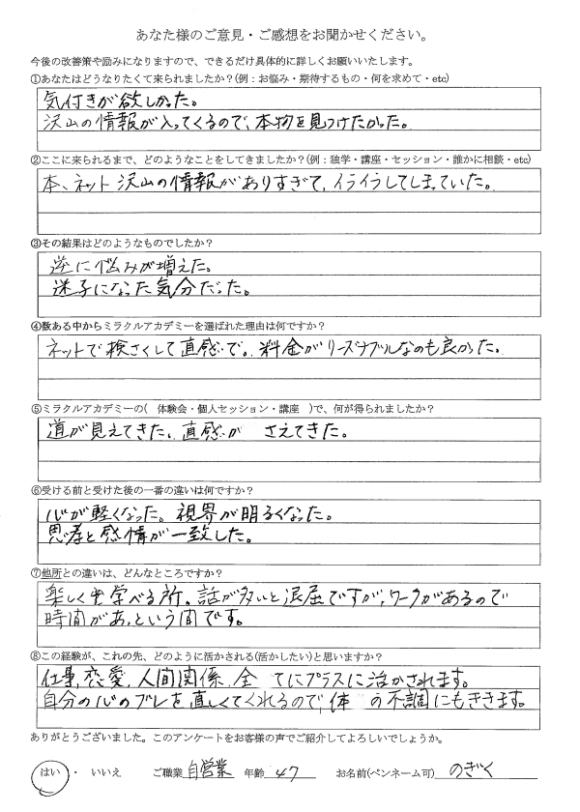 あなた様のご意見・ご感想をお聞かせください。
今後の改善策や励みになりますので、できるだけ具体的に詳しくお願いいたします。
①あなたはどうなりたくて来られましたか？(例：お悩み・期待するもの・何を求めて・etc)
気付きが欲しかった。
沢山の情報が入ってくるので、本物を見つけたかった。
②ここに来られるまで、どのようなことをしてきましたか？(例：独学・講座・セッション・誰かに相談・etc)
本、ネット 沢山の情報がありすぎて、イライラしてしまっていた。
③その結果はどのようなものでしたか？
逆に悩みが増えた。
迷子になった気分だった。
④数ある中からミラクルアカデミーを選ばれた理由は何ですか？
ネットで検さくして直感で。料金がリーズナブルなのも良かった。
⑤ミラクルアカデミーの(　体験会・個人セッション・講座　)で、何が得られましたか？
道が見えてきた。直感が　さえてきた。
⑥受ける前と受けた後の一番の違いは何ですか？
心が軽くなった。視界が明るくなった。
思考と感情が一致した。
⑦他所との違いは、どんなところですか？
楽しく学べる所。話が多いと退屈ですが、ワークがあるので
時間があっという間です。
⑧この経験が、これの先、どのように活かされる(活かしたい)と思いますか？
仕事、恋愛、人間関係、全　てにプラスに活かされます。
自分の心のブレを直しくてくれるので、体　の不調にもききます。
ありがとうございました。このアンケートをお客様の声でご紹介してよろしいでしょうか。
はい ・ いいえ　ご職業 自営業　年齢 47　お名前(ペンネーム可) のぎく